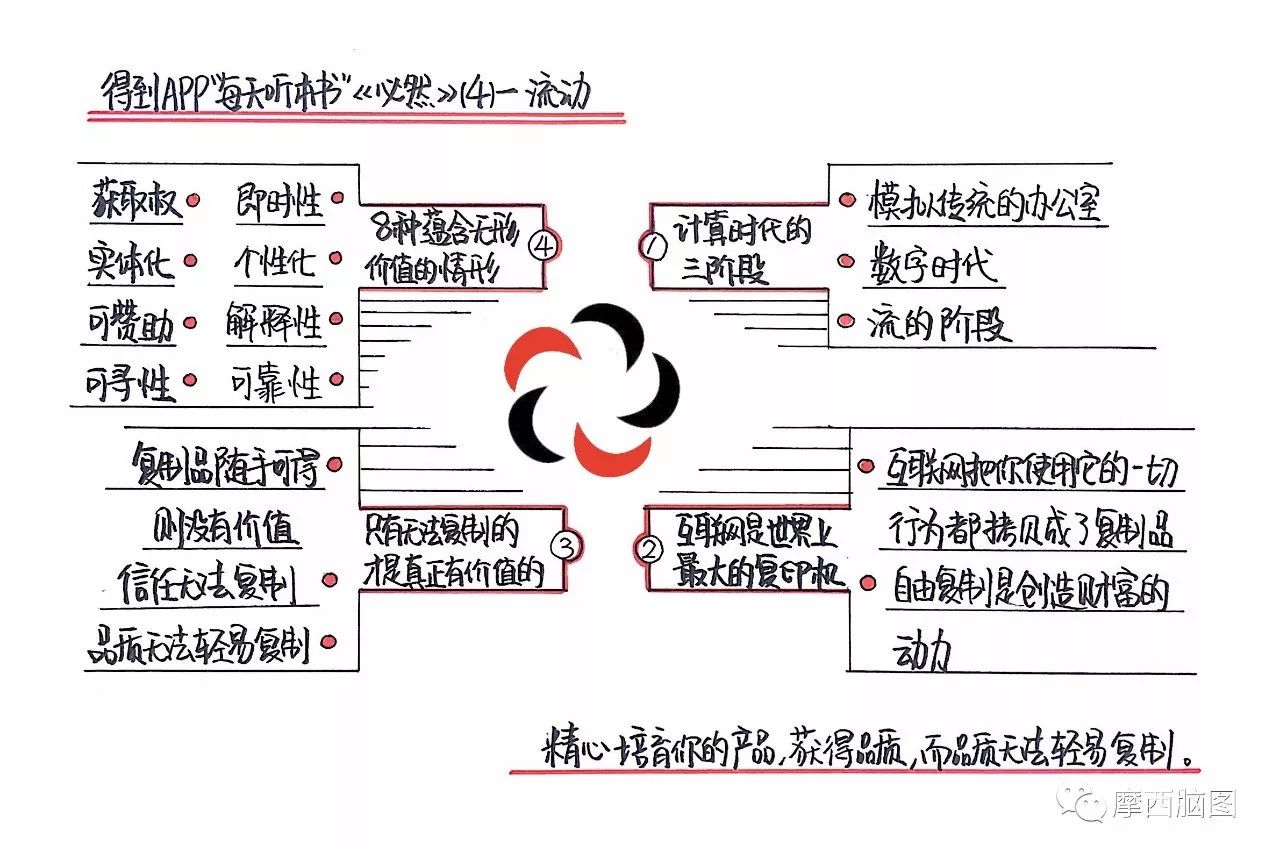 得到APP"每天听本书"《必然》(4)—流动
①
计算时代的
三阶段
模拟传统的办公室
数字时代
流的阶段
②
互联网是世界上
最大的复印机
互联网把你使用它的一切
行为都拷贝成了复制品
自由复制是创造财富的
动力
③
只有无法复制的
才是真正有价值的
复制品随手可得
则没有价值
信任无法复制
品质无法轻易复制
④
8种蕴含无形
价值的情形
获取权 即时性
实体化 个性化
可赞助 解释性
可寻性 可靠性
精心培育你的产品,获得品质,而品质无法轻易复制。
摩西脑图